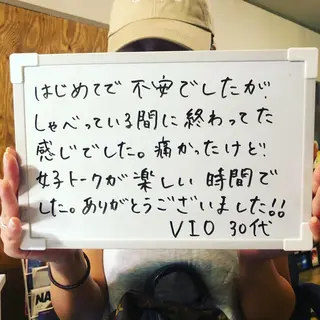 はじめてで不安でしたが
しゃべっている間に終わってた
感じでした。痛かったけど
女子トークが楽しい時間で
した。ありがとうございました!!
VIO 30代
NA